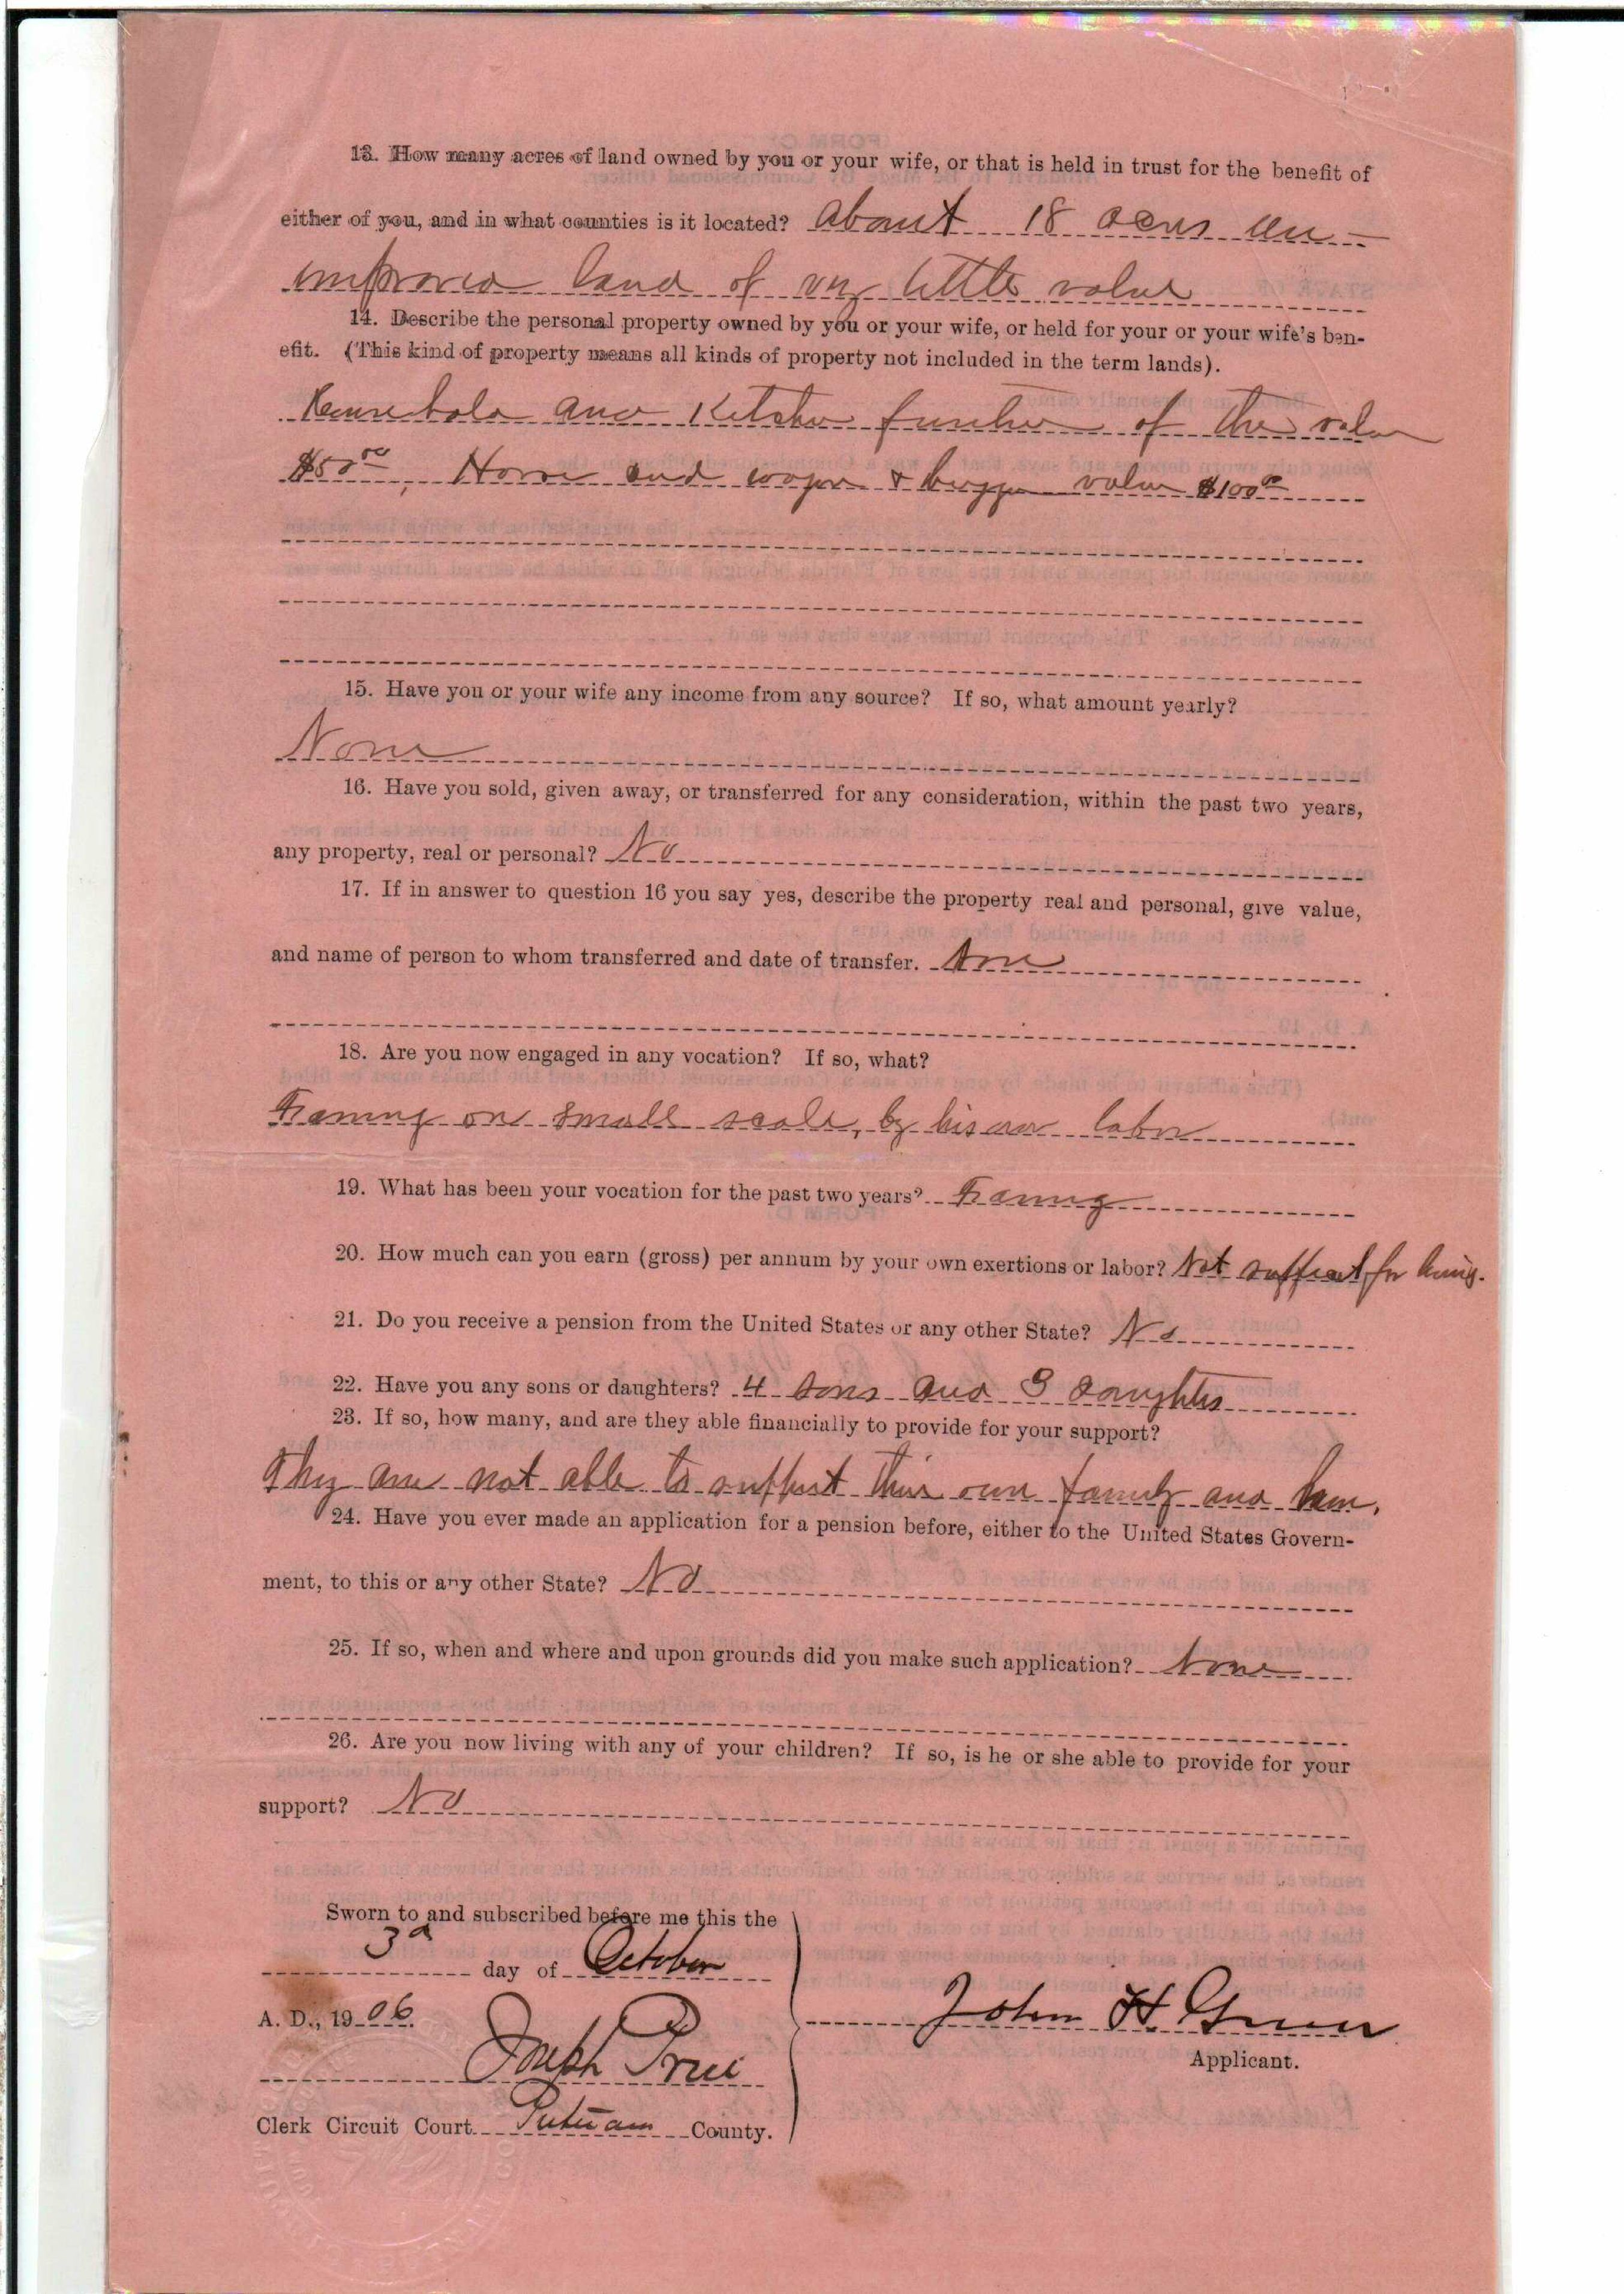 13. How many acres of land owned by you or your wife, or that is held in trust for the benefit of
either of you, and in what counties is it located? About 18 acres un-
improved land of very little value
14. Describe the personal property owned by you or your wife, or held for your or your wife's ben-
efit. (This kind of property means all kinds of property not included in the term lands).
Household and Kitchen furniture of the value
$50.00, Horse and wagon & buggy value $100.00
15. Have you or your wife any income from any source? If so, what amount yearly?
None
16. Have you sold, given away, or transferred for any consideration, within the past two years,
any property, real or personal? No
17. If in answer to question 16 you say yes, describe the property real and personal, give value,
and name of person to whom transferred and date of transfer. None
18. Are you now engaged in any vocation? If so, what?
Farming on small scale, by his own labor
19. What has been your vocation for the past two years? Farming
20. How much can you earn (gross) per annum by your own exertions or labor? Not sufficient for living.
21. Do you receive a pension from the United States or any other State? No
22. Have you any sons or daughters? 4 sons and 3 daughters
23. If so, how many, and are they able financially to provide for your support?
They are not able to support their own family and him.
24. Have you ever made an application for a pension before, either to the United States Govern-
ment, to this or any other State? No
25. If so, when and where and upon grounds did you make such application? None
26. Are you now living with any of your children? If so, is he or she able to provide for your
support? No
Sworn to and subscribed before me this the
3d day of October
A. D., 1906.
John H. Green
Applicant.
Joseph Price
Clerk Circuit Court Putnam County.